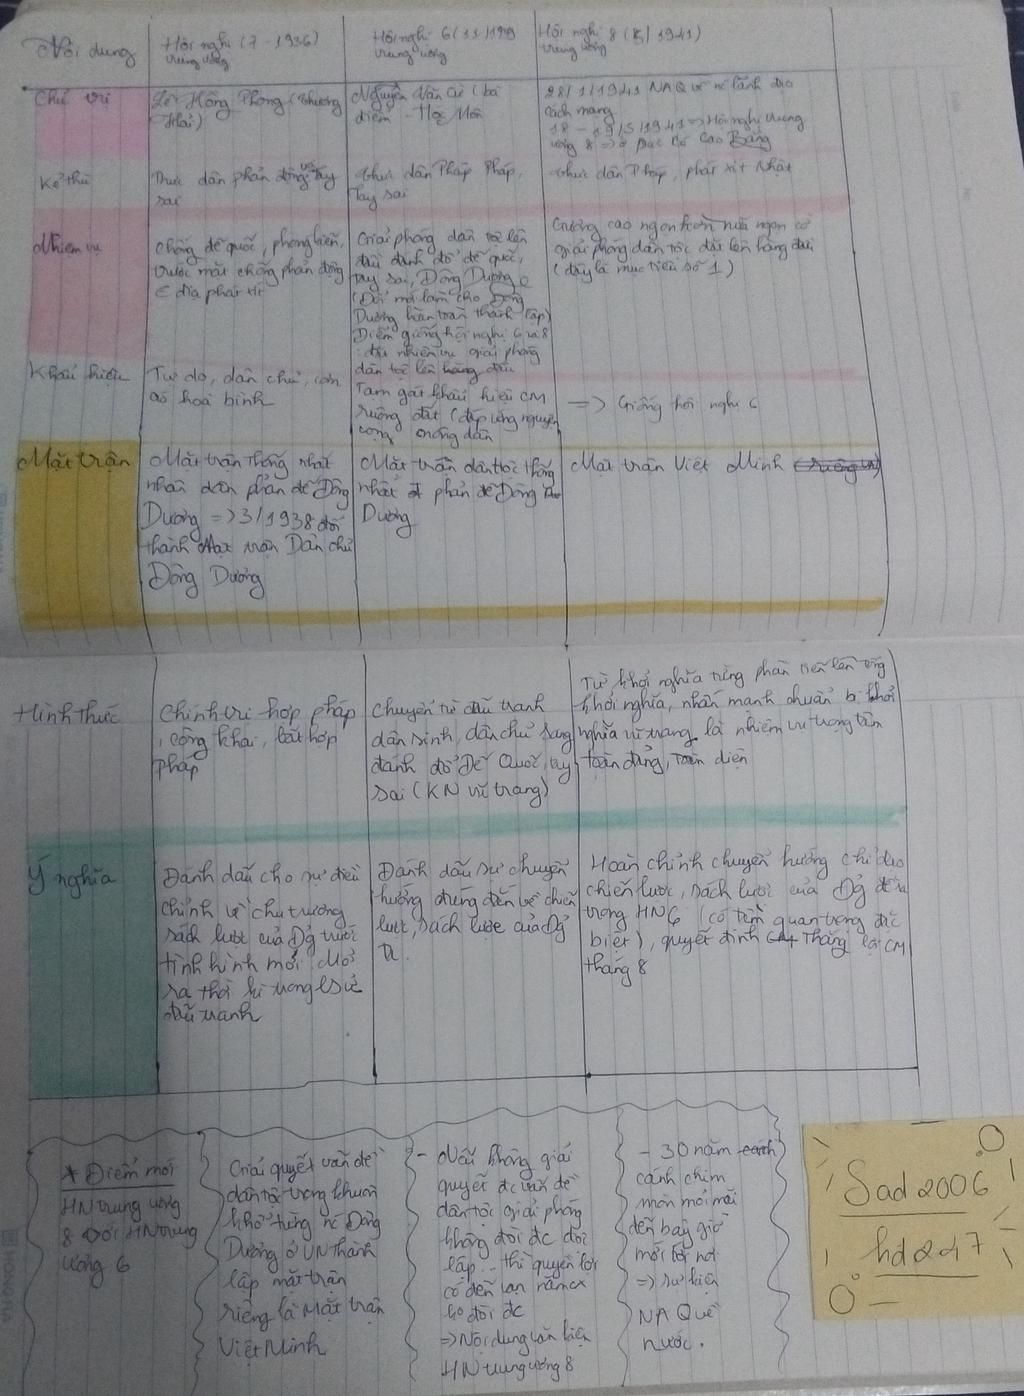 Nội dung
Hội nghị (7-1936)
trung ương
Hội nghị 6 (11/1939
trung ương
Hội nghị 8 (5/1941)
trung ương
Chủ trì
Lê Hồng Phong (Thượng
Hải)
Nguyễn Văn Cừ (bà
điểm - Hóc Môn
28/1/1941 NAQ về nc lãnh đạo
cách mạng
18 - 19/5/1941 => Hội nghị trung
ương 8 => ở Pác Bó Cao Bằng
Kẻ thù
Thực dân phản động và tay
sai
thực dân Pháp Pháp,
Tay sai
thực dân Pháp, phát xít Nhật
Nhiệm vụ
chống đế quốc, phong kiến,
trước mắt chống phản động
địa phát xít
Giải phóng dân tộc lên
đầu đánh đổ đế quốc,
tay sai, Đông Dương
làm cho Đông
Dương hoàn toàn thành lập)
Điểm giống hội nghị 6 và 8
: đều nhiệm vụ giải phóng
dân tộc lên hàng đầu
Giương cao ngọn hơn nữa ngọn cờ
giải phóng dân tộc đặt lên hàng đầu
(đây là mục tiêu số 1)
Khẩu hiệu
Tự do, dân chủ, cơm
áo hoà bình
Tạm gác khẩu hiệu CM
ruộng đất (đáp ứng nguyện
vọng nông dân
=> Giống hội nghị 6
Mặt trận
Mặt trận Thống nhất
nhân dân phản đế Đông
Dương => 3/1938 đổi
thành Mặt trận Dân chủ
Đông Dương
Mặt trận dân tộc thống
nhất phản đế Đông
Dương
Mặt trận Việt Minh
Hình thức
Chính trị hợp pháp
, công khai, bất hợp
pháp
Chuyển từ đấu tranh
dân sinh, dân chủ sang
đánh đổ Đế Quốc, tay
sai (KN vũ trang)
Từ khởi nghĩa từng phần tiến lên tổng
khởi nghĩa, nhấn mạnh chuẩn bị khởi
nghĩa vũ trang là nhiệm vụ trọng tâm
toàn đảng, toàn diện
Ý nghĩa
Đánh dấu cho sự điều
chỉnh về chủ trương
sách lược của Đg trước
tình hình mới. Mở
ra thời kì trong lsử
đấu tranh
Đánh dấu sự chuyển
hướng đúng đắn về chiến
lược, sách lược của Đg
ta.
Hoàn chỉnh chuyển hướng chỉ đạo
chiến lược, sách lược của Đg đề ra
trong HN6 (có tầm quan trọng đặc
biệt), quyết định Thắng lợi CM
tháng 8
* Điểm mới
HN trung ương
8 với HN trung
ương 6
Giải quyết vấn đề
dân tộc trong khuôn
khổ từng nc Đông
Dương ở VN thành
lập mặt trận
riêng là Mặt trận
Việt Minh
- Nếu không giải
quyết đc vấn đề
dân tộc giải phóng
không đòi đc độc
lập... thì quyền lợi
có đến vạn năm cx
ko đòi đc
=> Nội dung văn kiện
HN trung ương 8
- 30 năm
cánh chim
mòn mỏi mãi
đến bây giờ
mới tới nơi
=> sự kiện
NAQ về
nước.
Sad2006
hd247
HONG HA